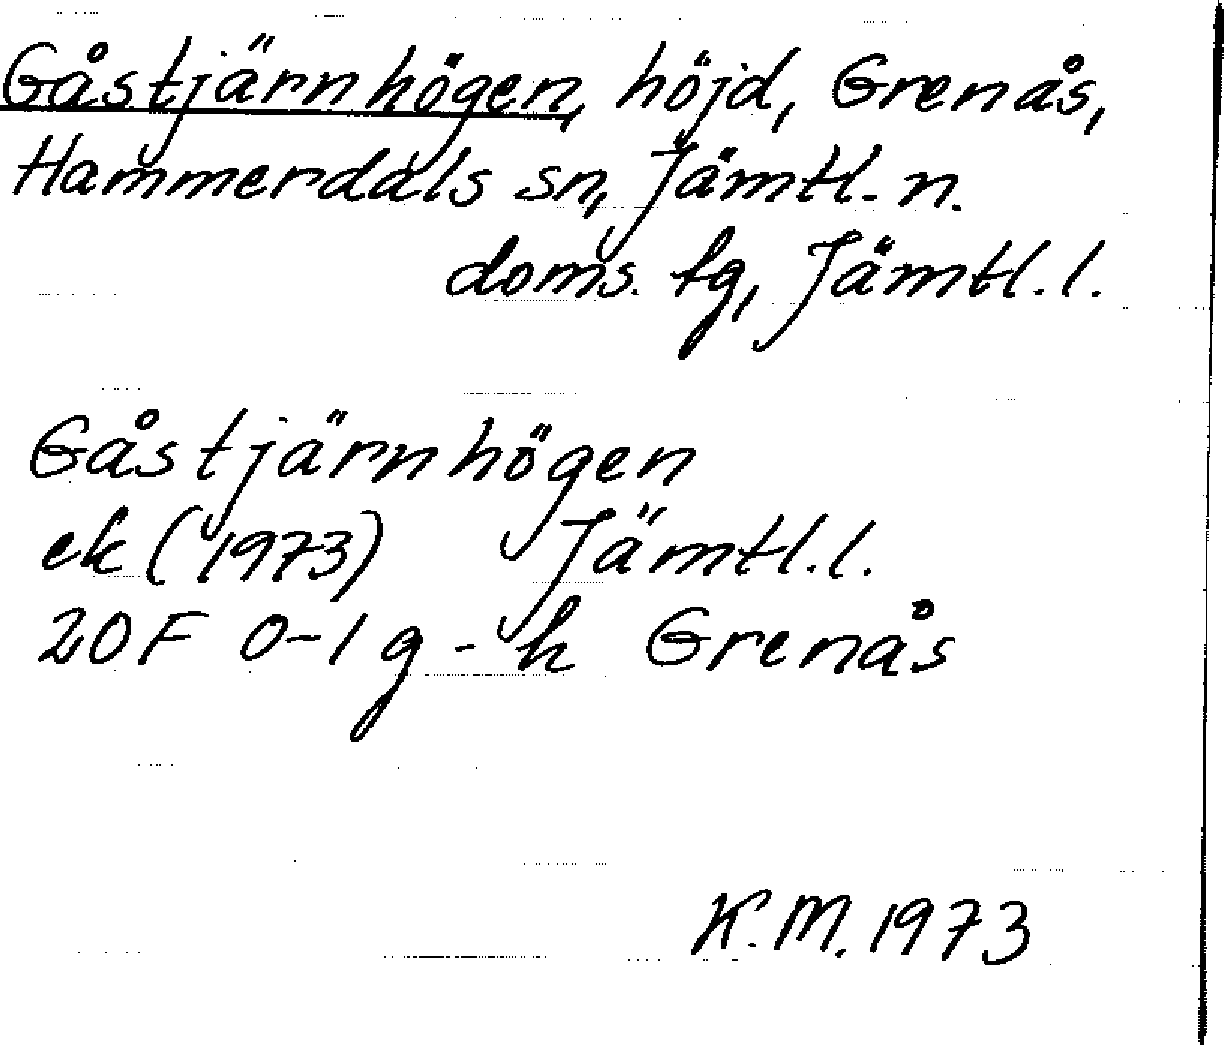 Gåstjärnhögen, höjd, Grenås,
Hammerdals sn, Jämtl. n.
doms. tg, Jämtl. l.
Gåstjärnhögen
ek (1973) Jämtl. l.
20F 0-1 g-h Grenås
K. M. 1973